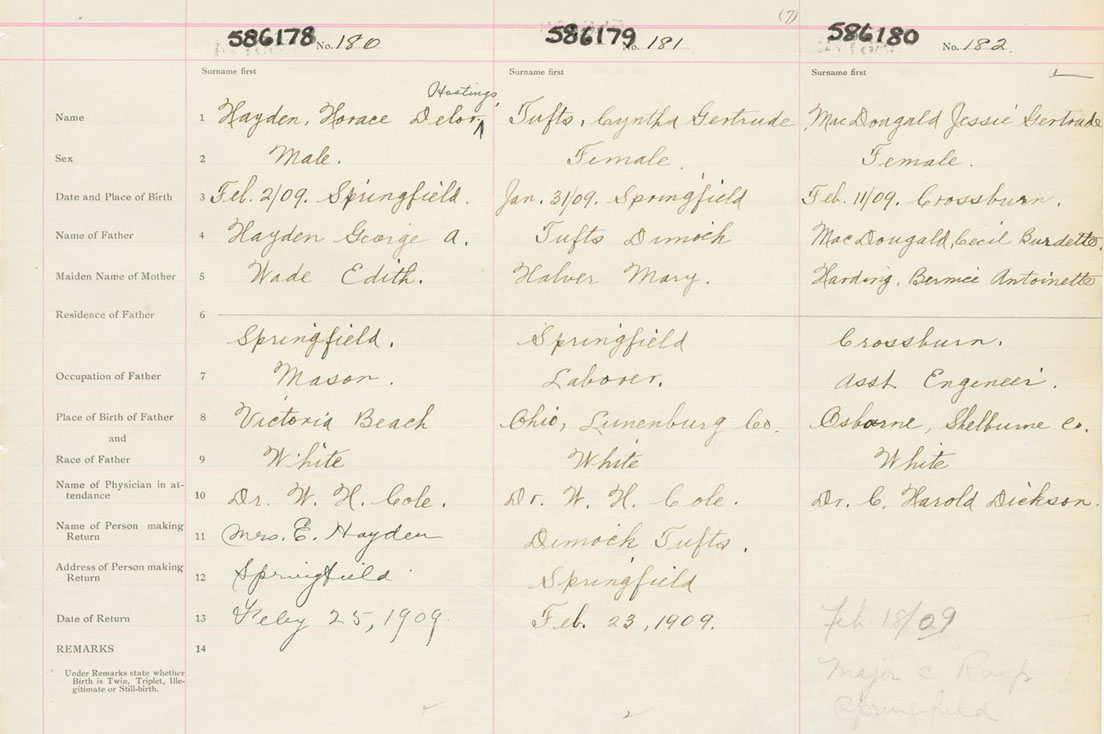 (7)
586178 No. 180 586179 No. 181 586180 No. 182
Surname first Surname first Surname first
Hastings
Name 1 Hayden, Horace Delor. Tufts, Cyntha Gertrude MacDougald Jessie Gertrude
Sex 2 Male. Female. Female.
Date and Place of Birth 3 Feb. 2/09. Springfield. Jan. 31/09. Springfield Feb. 11/09. Crossburn.
Name of Father 4 Hayden George A. Tufts Dimock MacDougald, Cecil Burdette.
Maiden Name of Mother 5 Wade Edith. Halver Mary. Harding, Bernice Antoinette
Residence of Father 6
Springfield. Springfield Crossburn.
Occupation of Father 7 Mason. Laborer. Asst Engineer.
Place of Birth of Father 8 Victoria Beach Ohio, Lunenburg Co. Osborne, Shelburne Co.
and
Race of Father 9 White White White
Name of Physician in at-
tendance 10 Dr. W. H. Cole. Dr. W. H. Cole. Dr. C. Harold Dickson.
Name of Person making
Return 11 Mrs. E. Hayden Dimock Tufts.
Address of Person making
Return 12 Springfield Springfield
Date of Return 13 Feby 25, 1909. Feb. 23, 1909. Feb. 18/09
REMARKS 14
Under Remarks state whether
Birth is Twin, Triplet, Ille-
gitimate or Still-birth.
Major C
Springfield